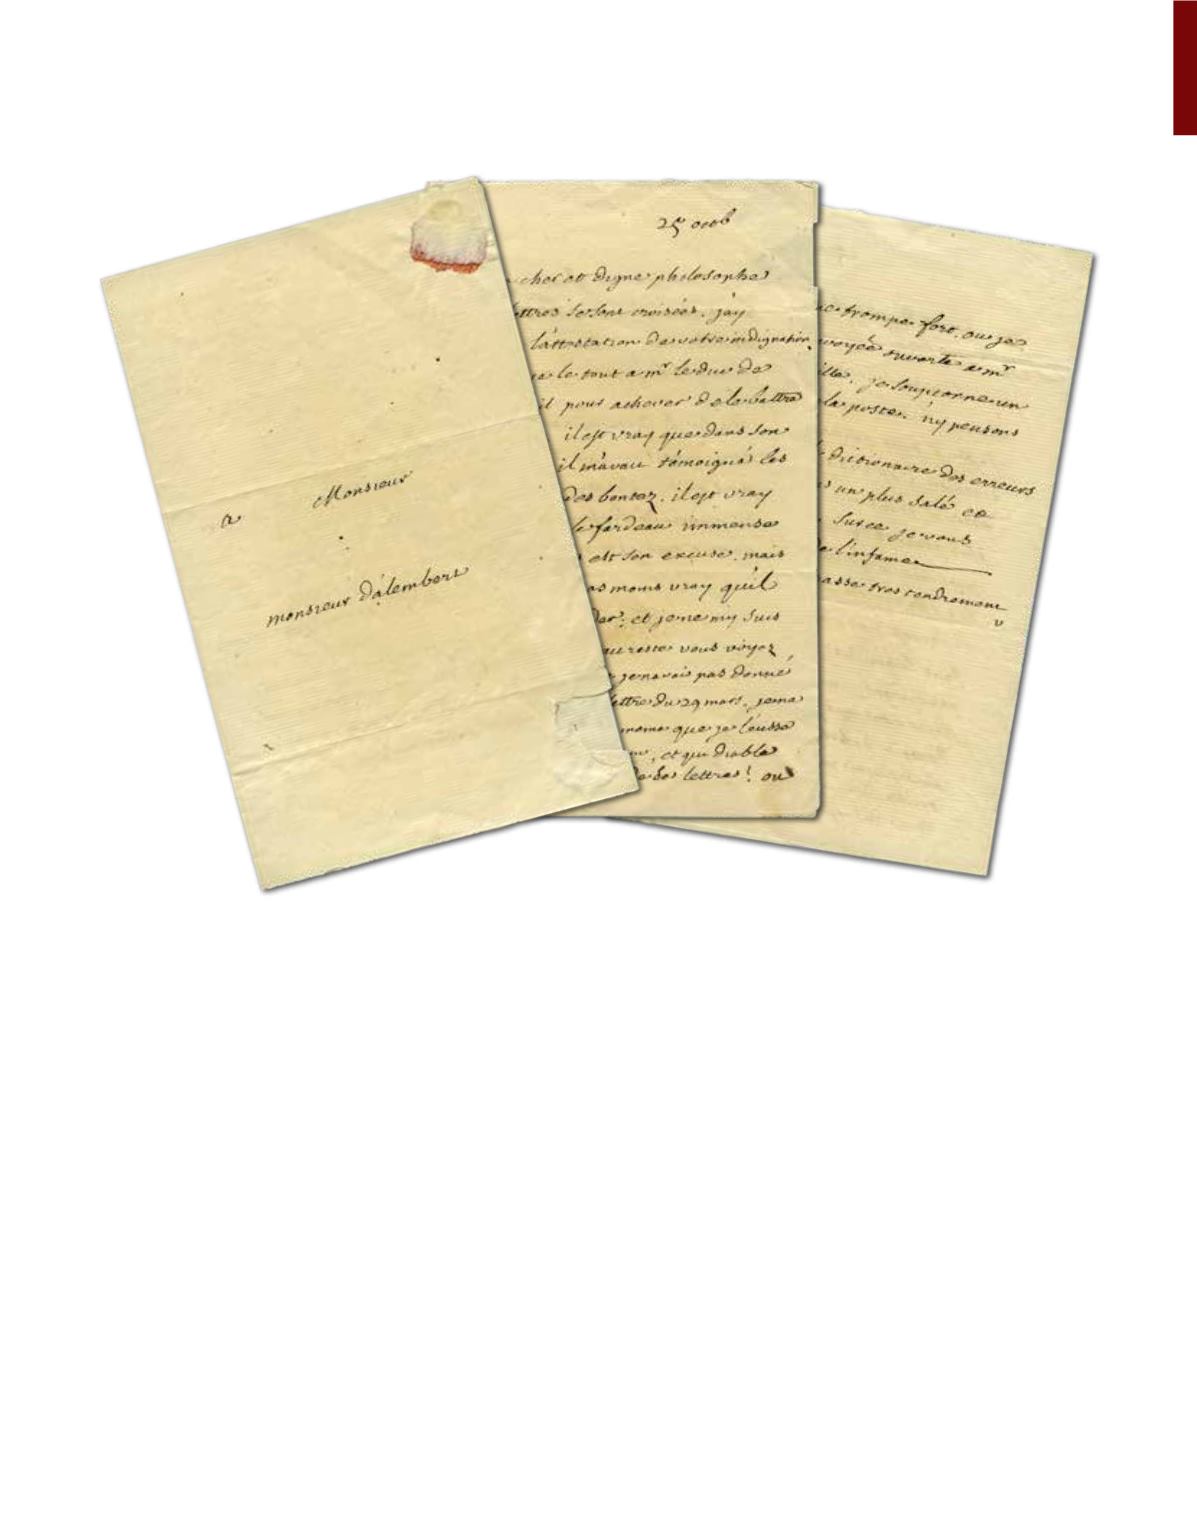 a Monsieur
monsieur d'alembert
25 octob
cher et digne philosophe
ettres se sont croisées. j'ay
l'attestation de votre indignation
le tout a mr le duc de
il pour achever de le battre
il est vray que dans son
il m'avait témoigné les
des bontez. il est vray
le fardeau immense
est son excuse. mais
as moins vray qu'il
et je ne my suis
au reste vous voyez
je n'avais pas donné
lettre du 29 mars. je
meme que je l'eusse
et qui diable
de ses lettres! ou
trompe fort. ou je
voyée ouverte a mr
ille. je soupconne un
la poste. n'y pensons
dictionaire des erreurs
un plus salé et
Susee je vous
de l'infame
asse tres tendrement
v